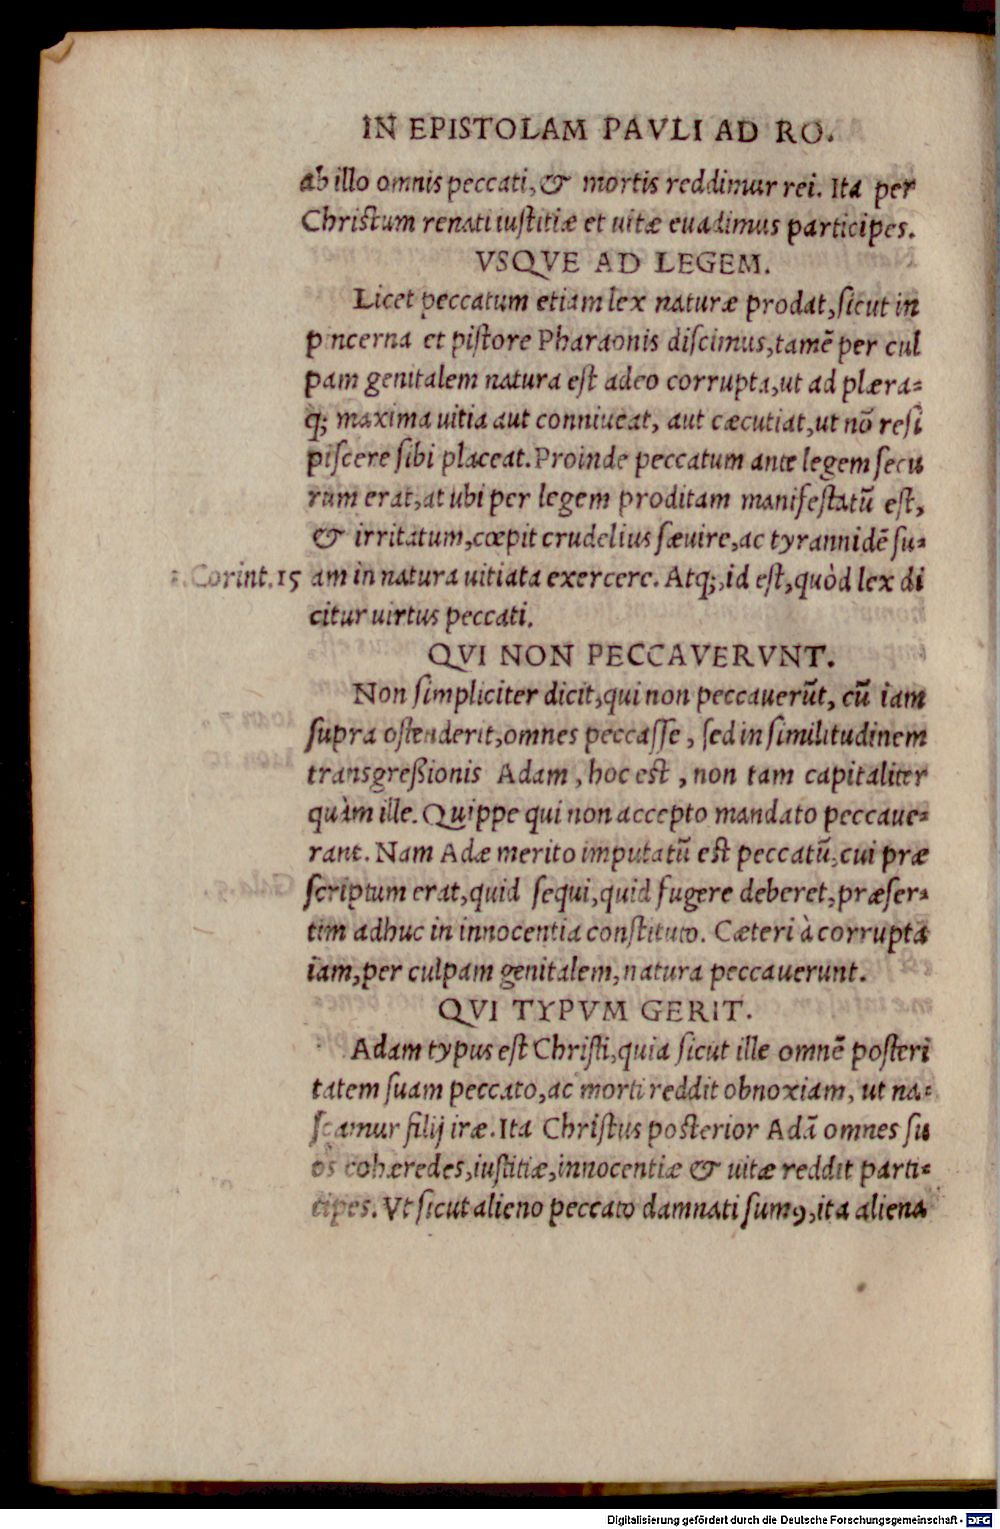 IN EPISTOLAM PAVLI AD RO.
ab illo omnis peccati, & mortis reddimur rei. Ita per
Christum renati iustitiæ et uitæ euadimus participes.
VSQVE AD LEGEM.
Licet peccatum etiam lex naturæ prodat, sicut in
pincerna et pistore Pharaonis discimus, tamē per cul
pam genitalem natura est adeo corrupta, ut ad plæra-
q; maxima uitia aut conniueat, aut cæcutiat, ut nō resi
piscere sibi placeat. Proinde peccatum ante legem secu
rum erat, at ubi per legem proditam manifestatū est,
& irritatum, cœpit crudelius sæuire, ac tyrannidē su-
1. Corint. 15 am in natura uitiata exercere. Atq;, id est, quòd lex di
citur uirtus peccati.
QVI NON PECCAVERVNT.
Non simpliciter dicit, qui non peccauerūt, cū iam
supra ostenderit, omnes peccasse, sed in similitudinem
transgreßionis Adam, hoc est, non tam capitaliter
quàm ille. Quippe qui non accepto mandato peccaue-
rant. Nam Adæ merito imputatū est peccatū, cui præ
scriptum erat, quid sequi, quid fugere deberet, præser-
tim adhuc in innocentia constituto. Cæteri à corrupta
iam, per culpam genitalem, natura peccauerunt.
QVI TYPVM GERIT.
Adam typus est Christi, quia sicut ille omnē posteri
tatem suam peccato, ac morti reddit obnoxiam, ut na-
scamur filij iræ. Ita Christus posterior Adā omnes su
os cohæredes, iustitiæ, innocentiæ & uitæ reddit parti-
cipes. Vt sicut alieno peccato damnati sumꝯ, ita aliena
Digitalisierung gefördert durch die Deutsche Forschungsgemeinschaft - DFG